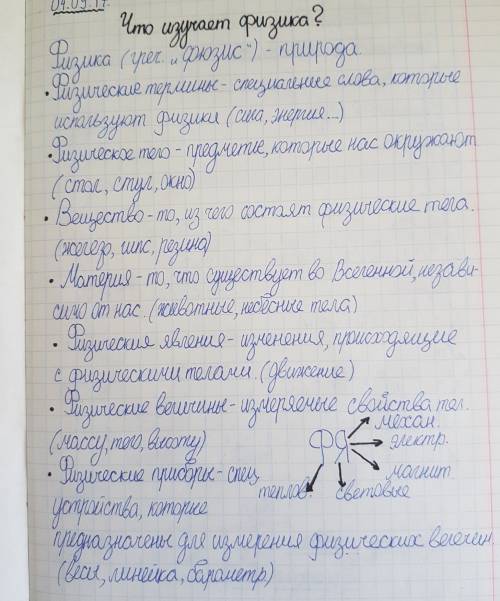 04.09.17.
Что изучает физика?
Физика (греч. „фюзис“) - природа
• Физические термины - специальные слова, которые
используют физики (сила, энергия...)
• Физическое тело - предметы, которые нас окружают
(стол, стул, окно)
• Вещество - то, из чего состоят физические тела.
(железо, гипс, резина)
• Материя - то, что существует во Вселенной, незави-
симо от нас. (животные, небесные тела)
• Физические явления - изменения, происходящие
с физическими телами. (движение)
• Физические величины - измеряемые свойства тел.
(массу, тело, высоту)
ФЯ
механ.
электр.
магнит.
световые
теплов.
• Физические приборы - спец.
устройства, которые
предназначены для измерения физических величин.
(весы, линейка, барометр)